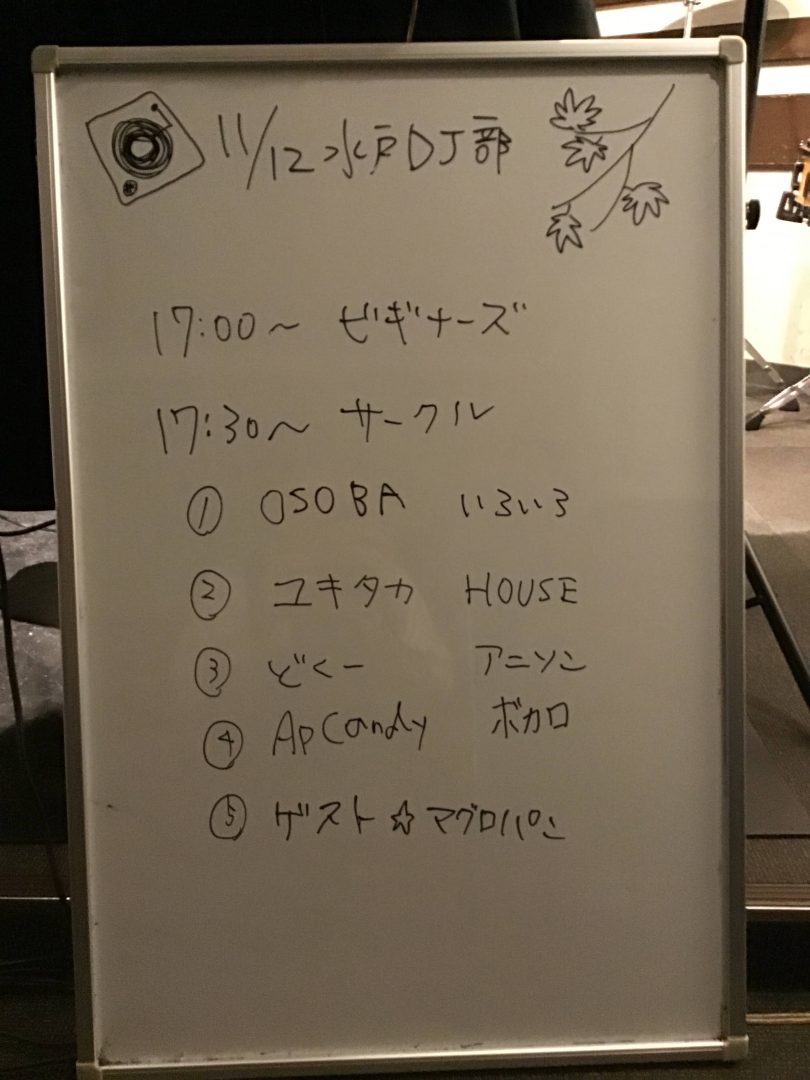 11/12 水戸DJ部
17:00〜 ビギナーズ
17:30〜 サークル
① OSOBA いろいろ
② ユキタカ HOUSE
③ どくー アニソン
④ ApCandy ボカロ
⑤ ゲスト☆マグロパン